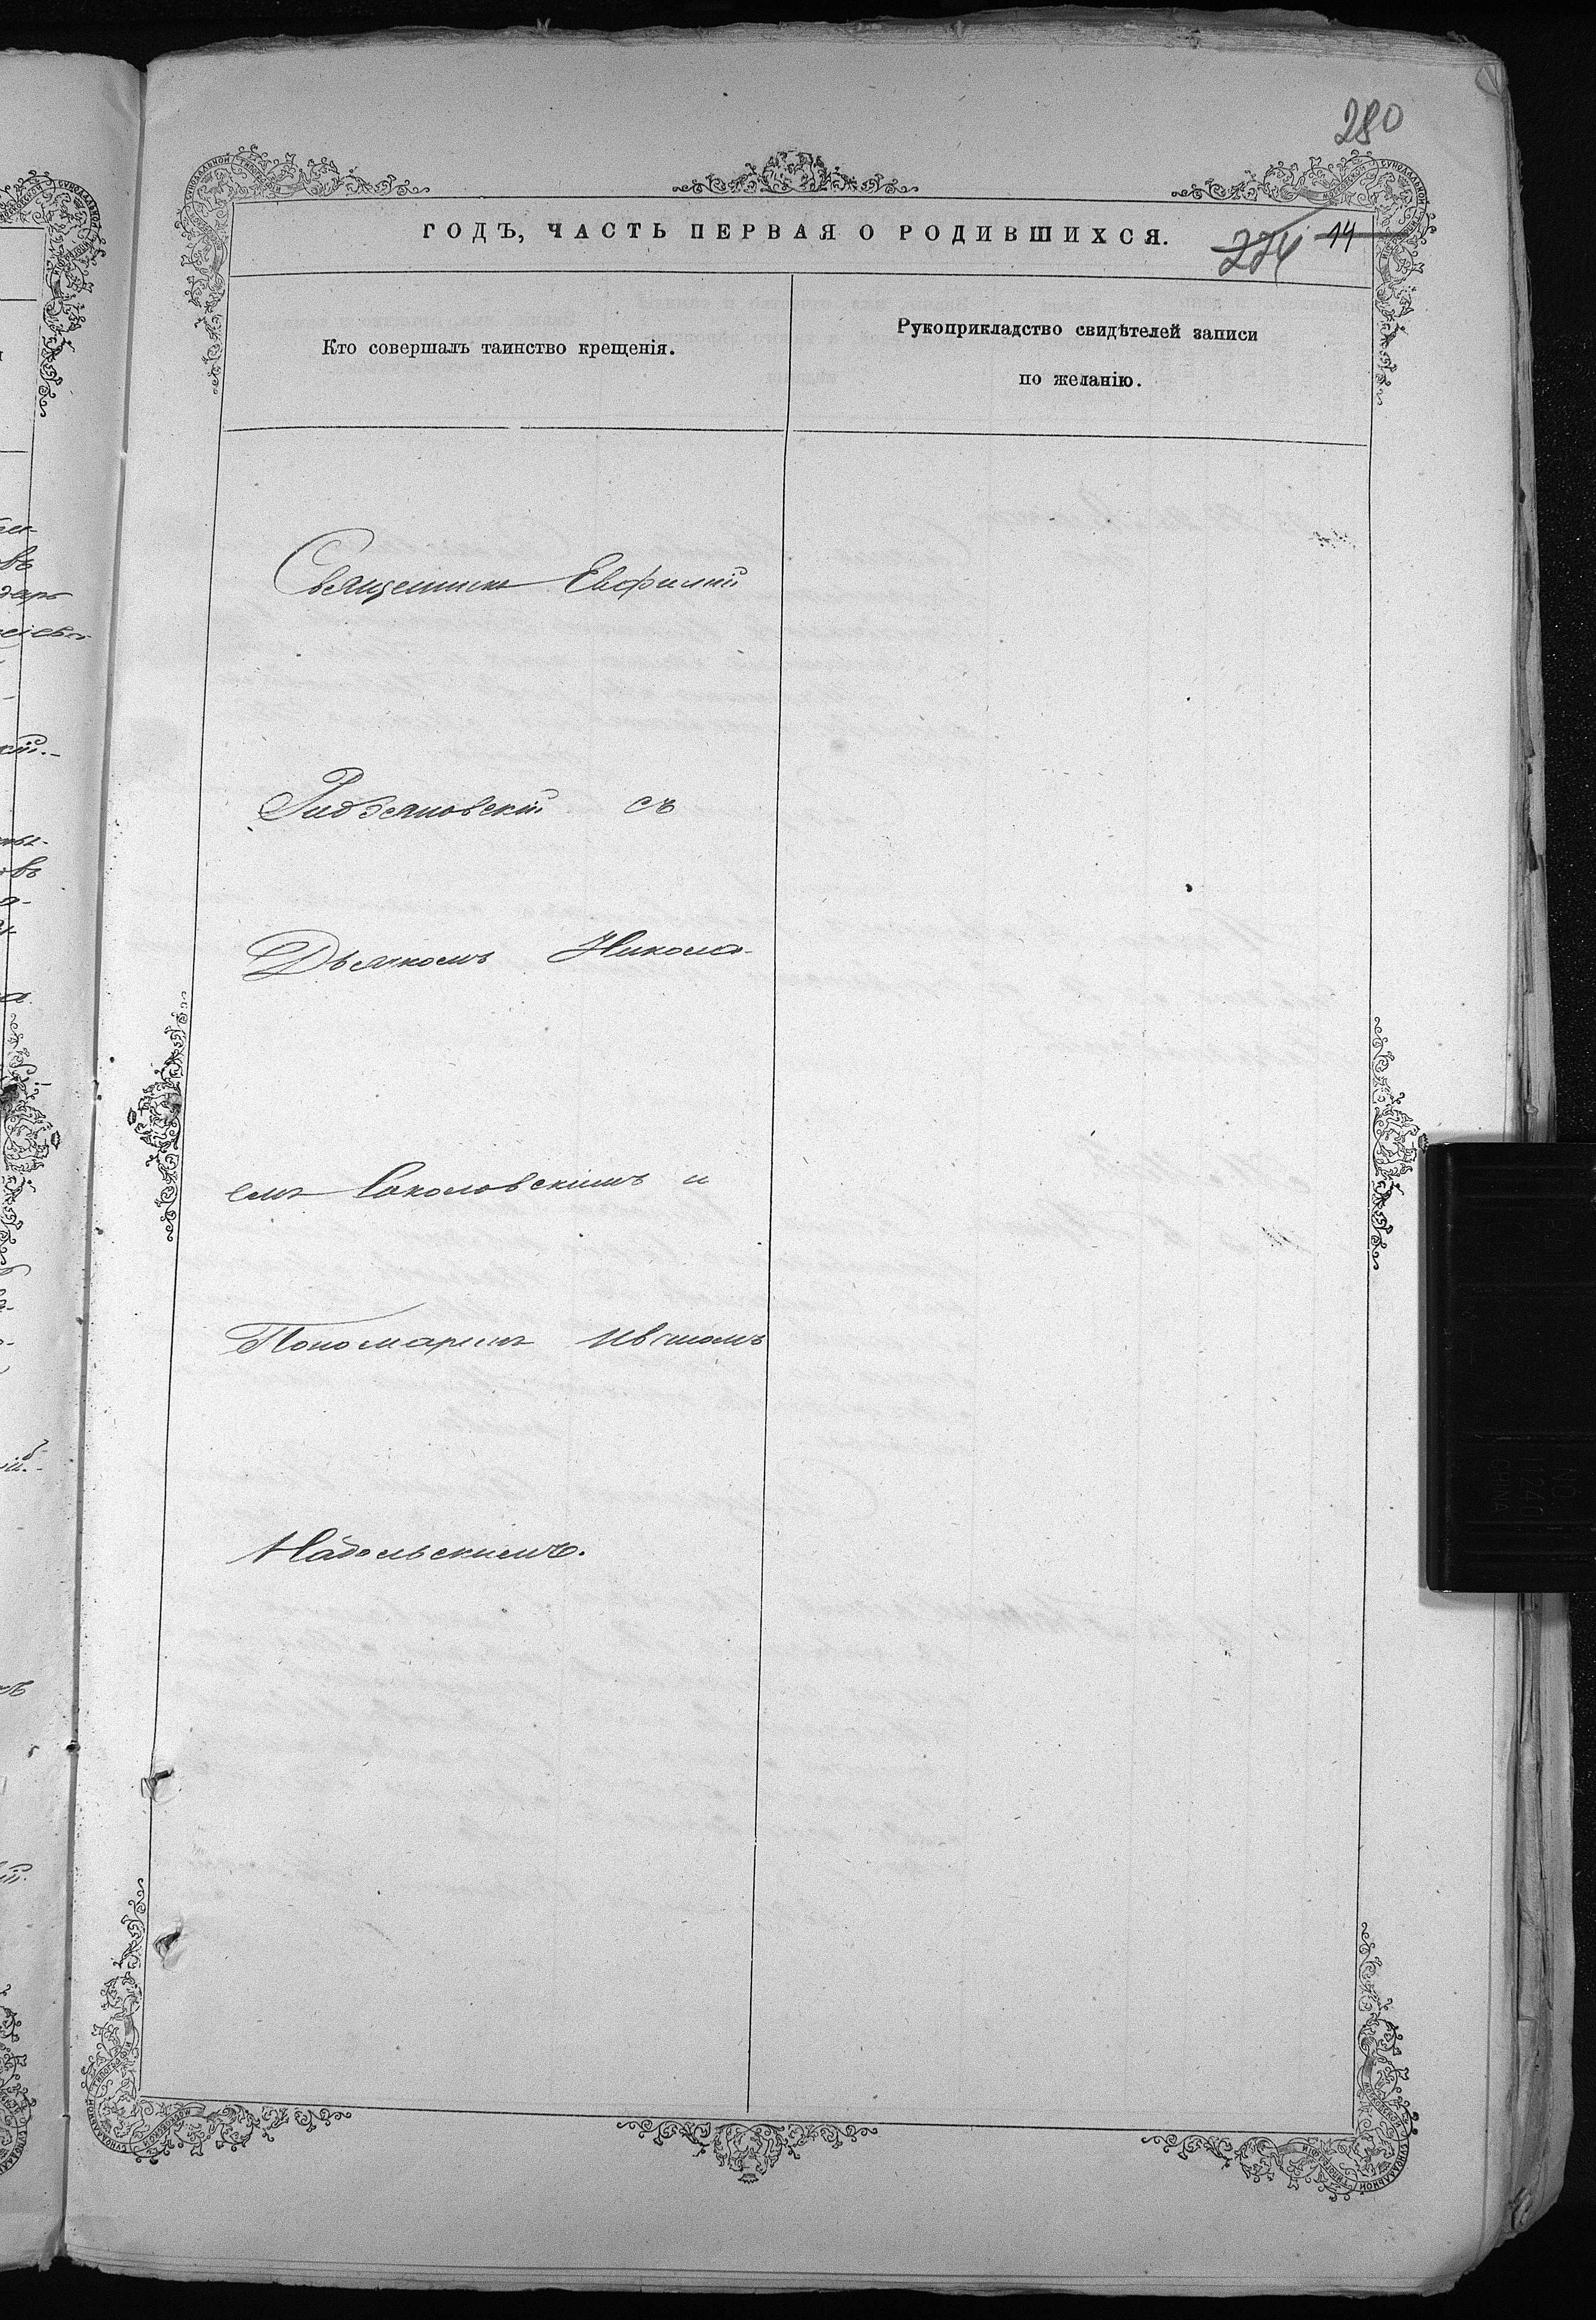 280
ГОДЪ, ЧАСТЬ ПЕРВАЯ О РОДИВШИХСЯ.
274 14
Кто совершалъ таинство крещенія.
Рукоприкладство свидѣтелей записи
по желанію.
Священникъ Евфимій
съ
Дьячкомъ Никола-
емъ Соколовскимъ и
Пономаремъ Иваномъ
Надольскимъ.